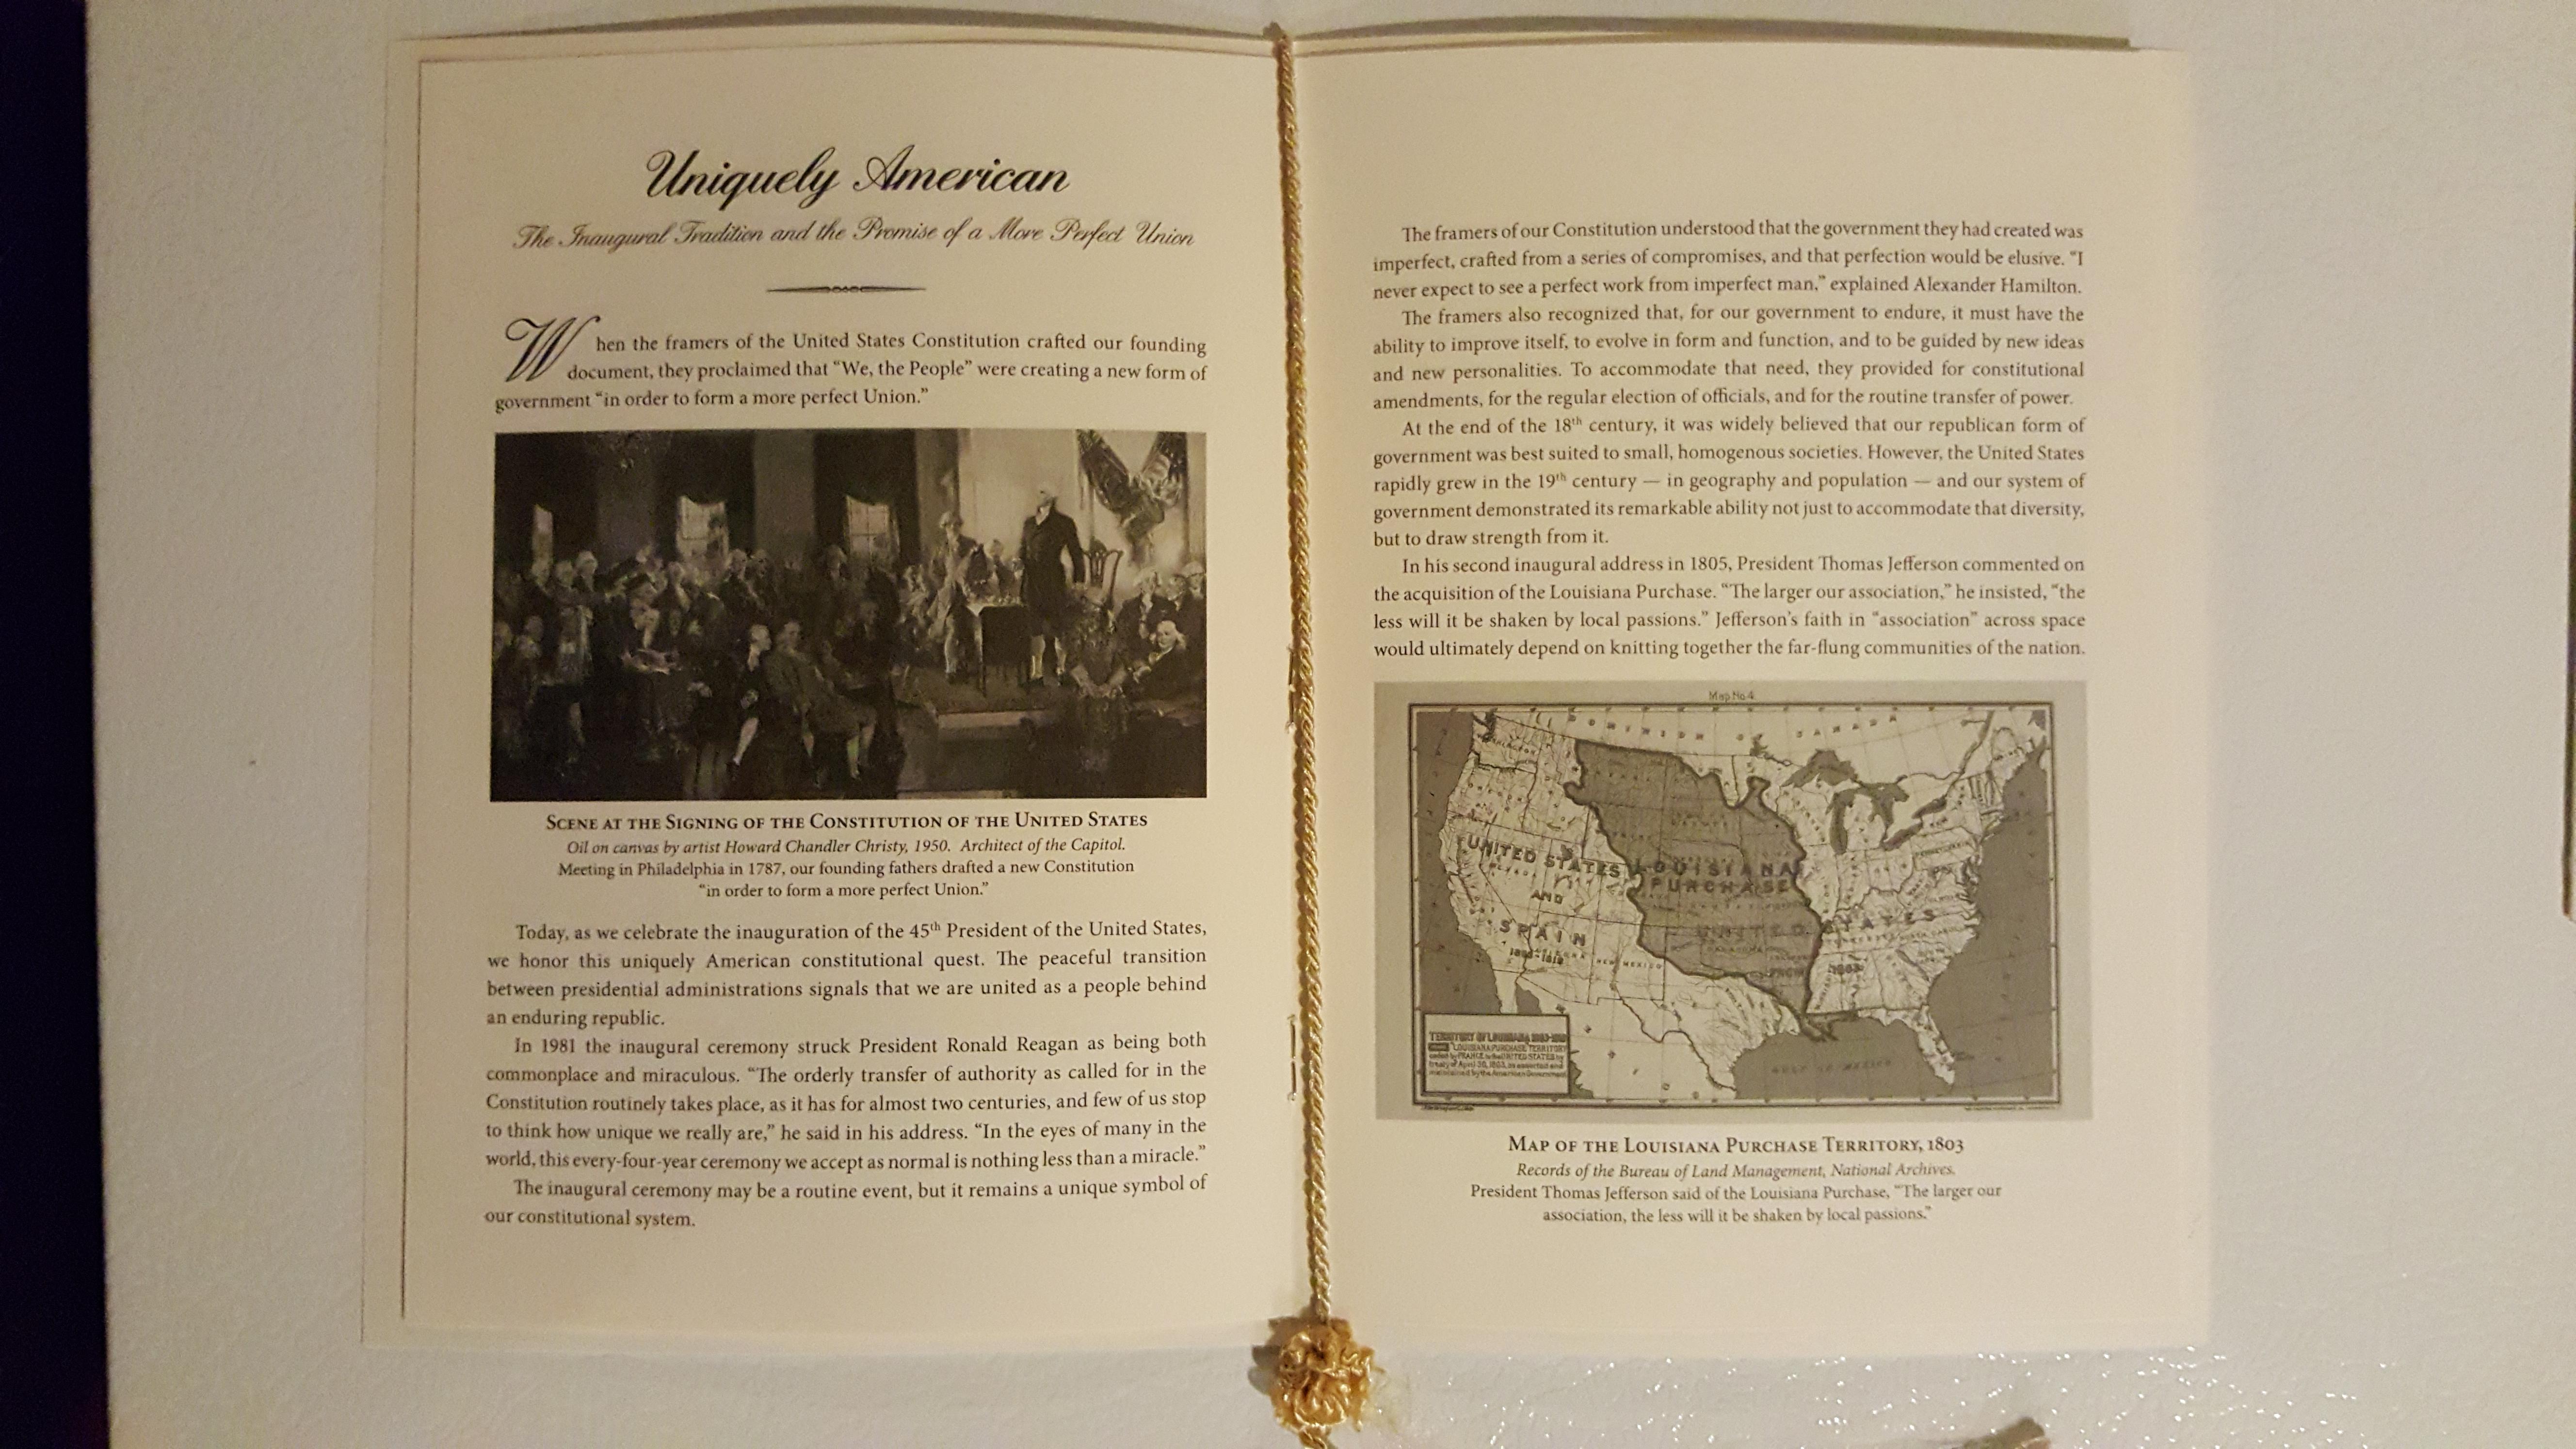 Uniquely American
The Inaugural Tradition and the Promise of a More Perfect Union
When the framers of the United States Constitution crafted our founding
document, they proclaimed that “We, the People” were creating a new form of
government “in order to form a more perfect Union.”
SCENE AT THE SIGNING OF THE CONSTITUTION OF THE UNITED STATES
Oil on canvas by artist Howard Chandler Christy, 1950. Architect of the Capitol.
Meeting in Philadelphia in 1787, our founding fathers drafted a new Constitution
“in order to form a more perfect Union.”
Today, as we celebrate the inauguration of the 45th President of the United States,
we honor this uniquely American constitutional quest. The peaceful transition
between presidential administrations signals that we are united as a people behind
an enduring republic.
In 1981 the inaugural ceremony struck President Ronald Reagan as being both
commonplace and miraculous. “The orderly transfer of authority as called for in the
Constitution routinely takes place, as it has for almost two centuries, and few of us stop
to think how unique we really are,” he said in his address. “In the eyes of many in the
world, this every-four-year ceremony we accept as normal is nothing less than a miracle.”
The inaugural ceremony may be a routine event, but it remains a unique symbol of
our constitutional system.
The framers of our Constitution understood that the government they had created was
imperfect, crafted from a series of compromises, and that perfection would be elusive. “I
never expect to see a perfect work from imperfect man,” explained Alexander Hamilton.
The framers also recognized that, for our government to endure, it must have the
ability to improve itself, to evolve in form and function, and to be guided by new ideas
and new personalities. To accommodate that need, they provided for constitutional
amendments, for the regular election of officials, and for the routine transfer of power.
At the end of the 18th century, it was widely believed that our republican form of
government was best suited to small, homogenous societies. However, the United States
rapidly grew in the 19th century — in geography and population — and our system of
government demonstrated its remarkable ability not just to accommodate that diversity,
but to draw strength from it.
In his second inaugural address in 1805, President Thomas Jefferson commented on
the acquisition of the Louisiana Purchase. “The larger our association,” he insisted, “the
less will it be shaken by local passions.” Jefferson’s faith in “association” across space
would ultimately depend on knitting together the far-flung communities of the nation.
Map No 4
DOMINION OF CANADA
UNITED STATES
AND
SPAIN
LOUISIANA
PURCHASE
UNITED STATES
NEW MEXICO
GULF OF MEXICO
TERRITORY OF LOUISIANA
LOUISIANA PURCHASE TERRITORY
ceded by FRANCE to the UNITED STATES by
treaty of April 30, 1803, as asserted and
maintained by the American Government
MAP OF THE LOUISIANA PURCHASE TERRITORY, 1803
Records of the Bureau of Land Management, National Archives.
President Thomas Jefferson said of the Louisiana Purchase, “The larger our
association, the less will it be shaken by local passions.”